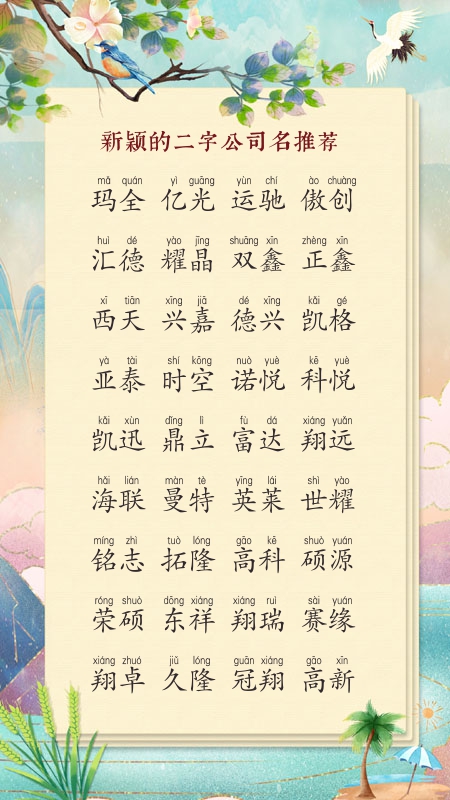 新颖的二字公司名推荐
mǎ quán yì guāng yùn chí ào chuàng
玛全 亿光 运驰 傲创
huì dé yào jīng shuāng xīn zhèng xīn
汇德 耀晶 双鑫 正鑫
xī tiān xīng jiā dé xīng kǎi gé
西天 兴嘉 德兴 凯格
yà tài shí kōng nuò yuè kē yuè
亚泰 时空 诺悦 科悦
kǎi xùn dǐng lì fù dá xiáng yuǎn
凯迅 鼎立 富达 翔远
hǎi lián màn tè yīng lái shì yào
海联 曼特 英莱 世耀
míng zhì tuò lóng gāo kē shuò yuán
铭志 拓隆 高科 硕源
róng shuò dōng xiáng xiáng ruì sài yuán
荣硕 东祥 翔瑞 赛缘
xiáng zhuó jiǔ lóng guān xiáng gāo xīn
翔卓 久隆 冠翔 高新